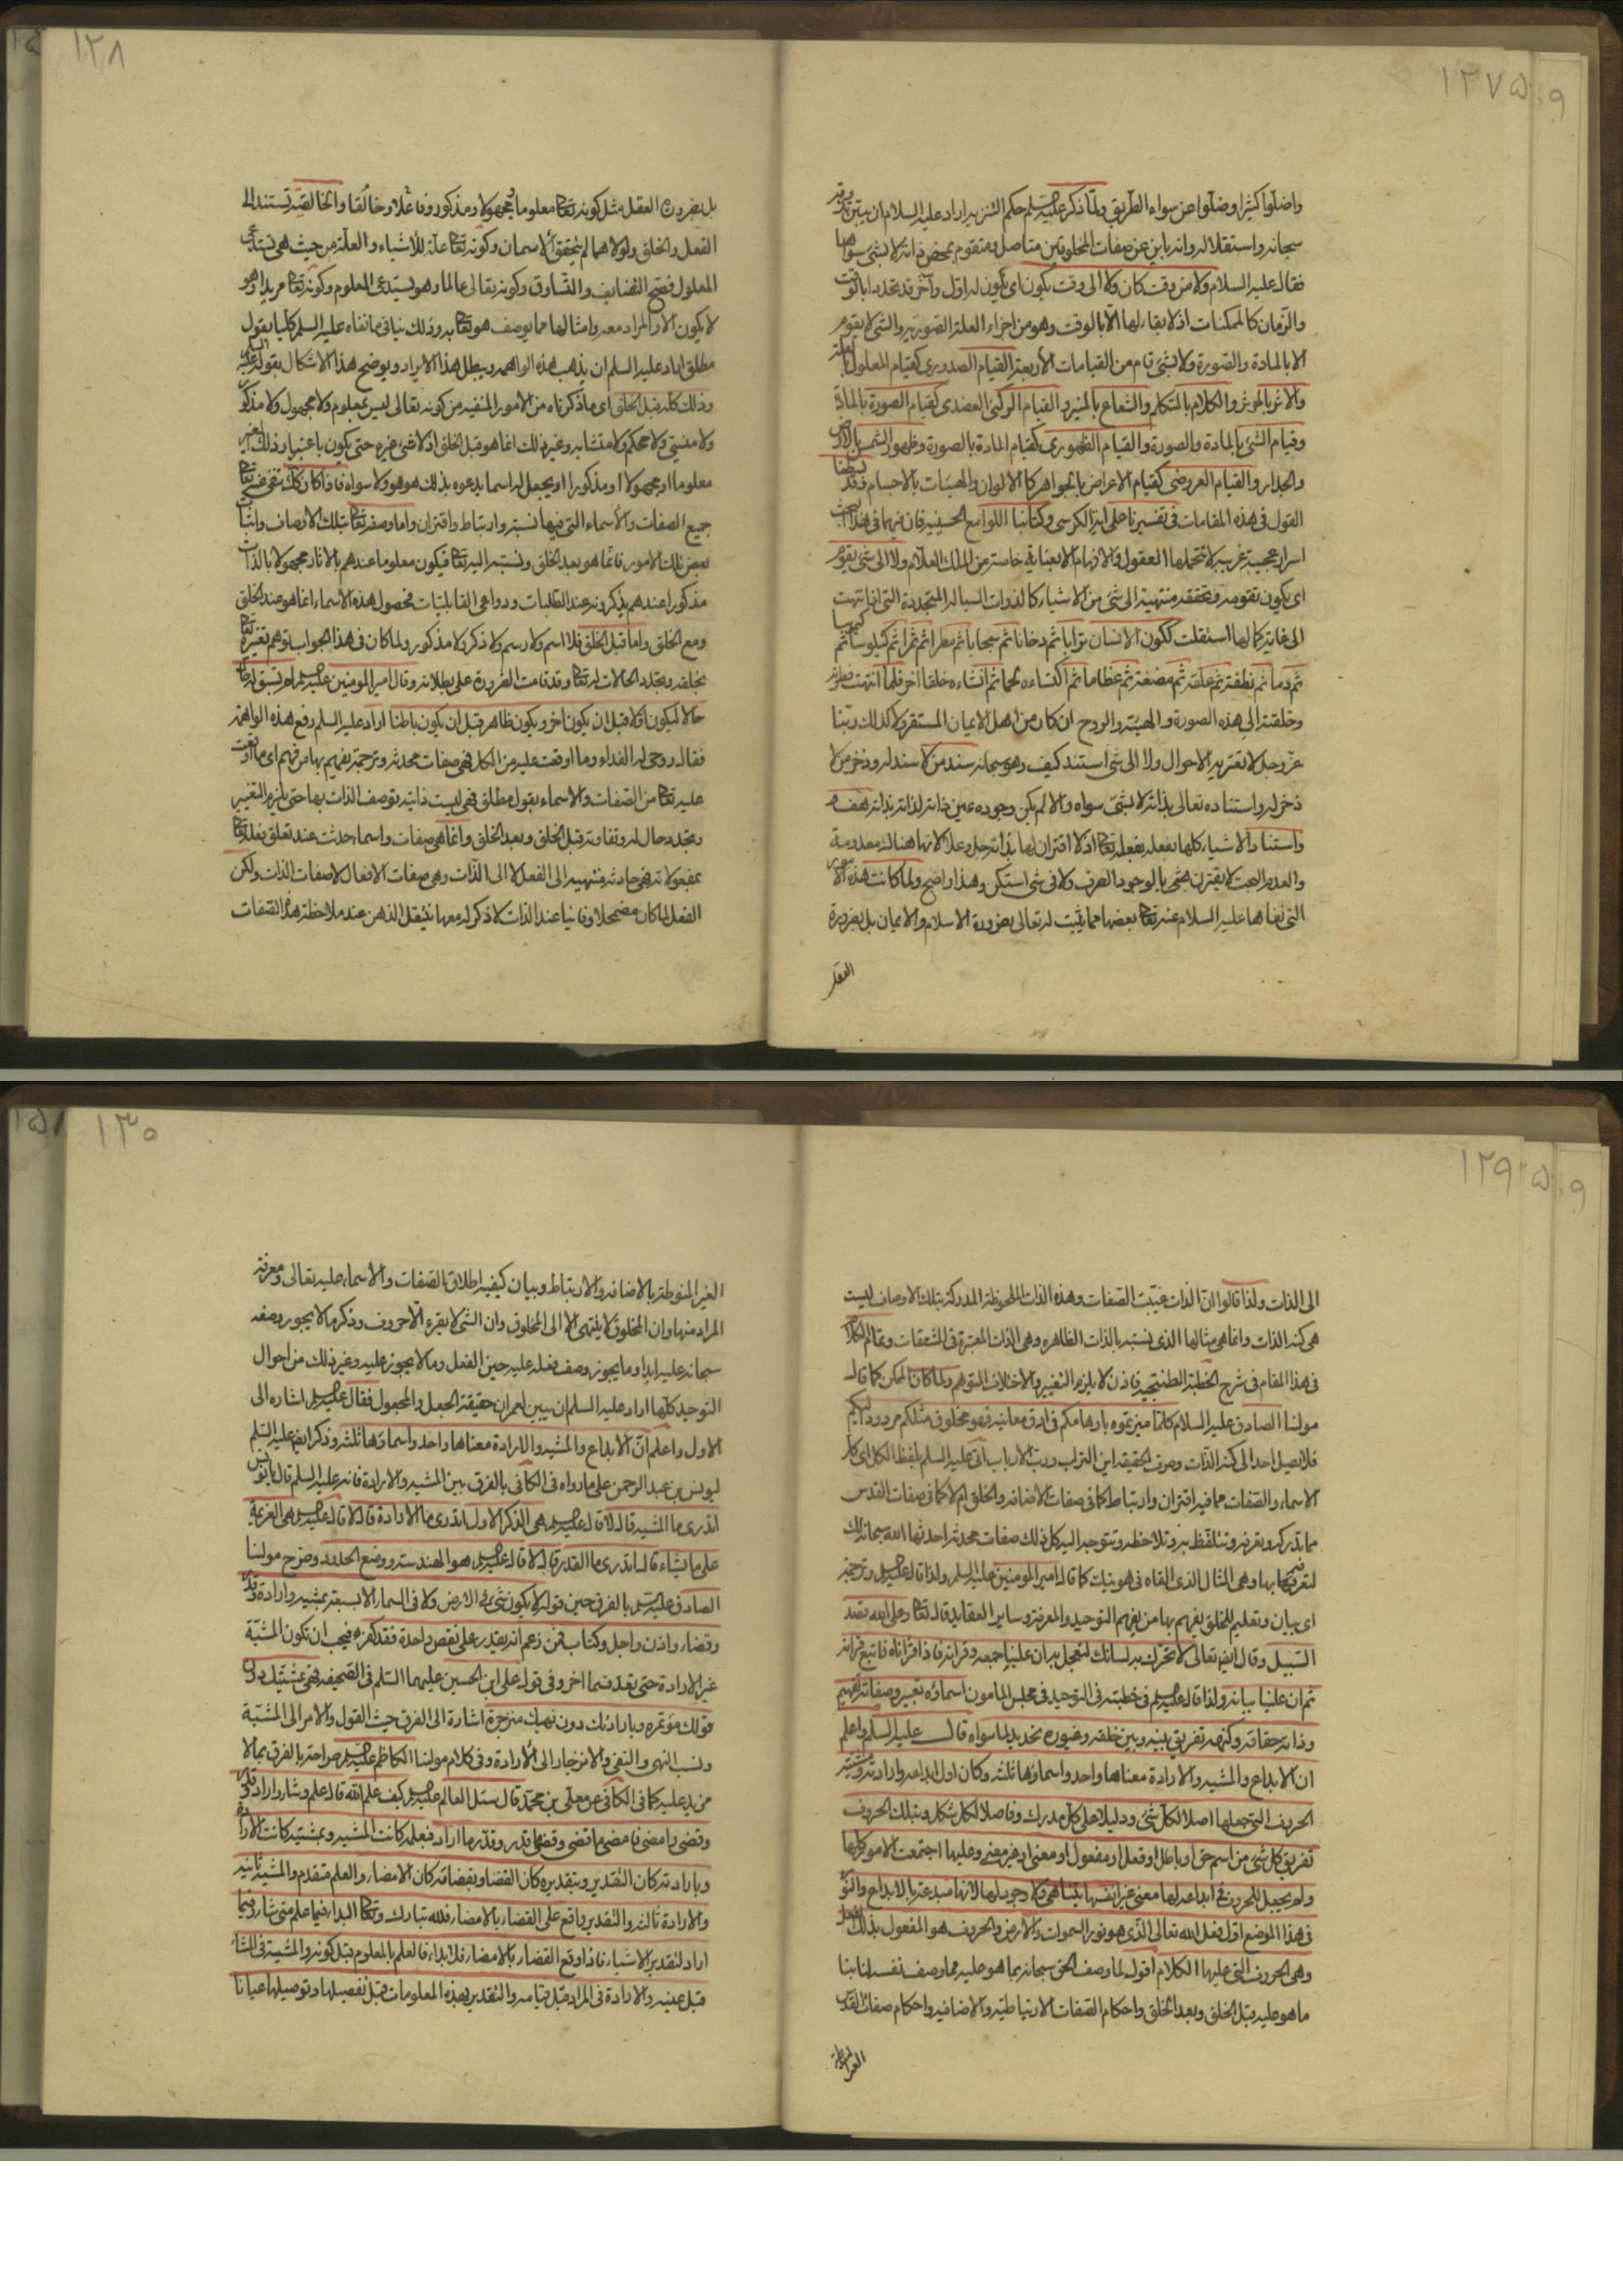 ١٢٧
واضلوا كثيرا وضلوا عن سواء الطريق ولما ذكر عليه السلم حكم التنزيه اراد عليه السلام ان يبين
سبحانه واستقلاله وانه باين عن صفات المخلوقين متاصل ومتقوم بمحض ذاته لا بشئ سواها
فقال عليه السلام ولا من وقت كان ولا الى وقت يكون اى يكون له اول وآخر قد تحدد بالوقت
والزمان كالممكنات اذ لا بقاء لها الا بالوقت وهو من اجزاء العلة الصورية والشئ لا يقوم
الا بالمادة والصورة ولا بشئ قام من القيامات الأربعة القيام الصدورى كقيام المعلول بالعلة
والاثر بالمؤثر والكلام بالمتكلم والشعاع بالمنير والقيام الركنى العضدى كقيام الصورة بالمادة
وقيام الشئ بالمادة والصورة والقيام الظهورى كقيام المادة بالصورة وظهور الشمس بالارض
والجدار والقيام العروضى كقيام الاعراض بالجواهر كالالوان والهيئات بالاجسام وقد بسطنا
القول فى هذه المقامات فى تفسيرنا على اية الكرسى وكتابنا اللوامع الحسينية فان فيها فى هذا البحث
اسرار عجيبة غريبة لا تتحملها العقول والافهام الا بعناية خاصة من الملك العلام ولا الى شئ يقوم
اى يكون تقومه وتحققه منتهية الى شئ من الاشياء كالذوات السيالة المتجددة التى اذا انتهت
الى غاية كمالها استقلت ككون الانسان ترابا ثم دخانا ثم سحابا ثم مطرا ثم ثمرا ثم كيلوسا ثم كيموسا
ثم دما ثم نطفة ثم علقة ثم مضغة ثم عظاما ثم اكتساءه لحما ثم انشاءه خلقا اخر فلما انتهت فطرته
وخلقته الى هذه الصورة والهيئة والروح ان كان من اهل الايمان المستقر ولا كذلك ربنا
عز وجل لا تعتريه الاحوال ولا الى شئ استند كيف وهو سبحانه سند من لا سند له وذخر من لا
ذخر له واستناده تعالى بذاته لا بشئ سواه والا لم يكن وجوده عين ذاته لذاته بذاته هف
واستناد الاشياء كلها بفعله بفعله تعالى اذ لا اقتران لها بذاته جل وعلا لانها هناك معدومة
والعدم البحت لا يقترن بالوجود الصرف ولا فى شئ استكن وهذا واضح ولما كانت هذه الامور
التى نفاها عليه السلام عنه تعالى بعضها مما يثبت له تعالى بضرورة الاسلام والايمان بل بضرورة
العقل
١٢٨
بل بضرورة العقل مثل كونه تعالى معلوما ومجهولا ومذكورا وفاعلا وخالقا والخالقية تستند الى
الفعل والخلق ولولاهما لم يتحقق الاسمان وكونه تعالى علة للأشياء والعلة من حيث هى تستدعى
المعلول فصح التضايف والتساوق وكونه تعالى عالما وهو يستدعى المعلوم وكونه تعالى مريدا وهو
لا يكون الا والمراد معه وامثالها مما يوصف هو تعالى به وذلك ينافى ما نفاه عليه السلم كليا بقول
مطلق اراد عليه السلم ان يذهب هذه الواهمة ويبطل هذا الايراد ويوضح هذا الاشكال بقوله عليه السلم
وذلك كله قبل الخلق اى ما ذكرناه من الامور المنفية من كونه تعالى ليس بمعلوم ولا مجهول ولا مذكور
ولا منسى ولا محكم ولا متشابه وغير ذلك انما هو قبل الخلق اذ لا شئ غيره حتى يكون باعتبار ذلك الغير
معلوما او مجهولا او مذكورا او يجعل له اسما يدعوه بذلك هو هو ولا سواه فاذا كان كك تنتفى عنه تعالى
جميع الصفات والأسماء التى فيها نسبة وارتباط واقتران واما وصفه تعالى بتلك الاوصاف واثبات
بعض تلك الامور فانما هو بعد الخلق ونسبته اليه تعالى فيكون معلوما عندهم بالاثار مجهولا بالذات
مذكورا عندهم يذكرونه عند الطلبات ودواعى القابليات فحصول هذه الأسماء انما هو عند الخلق
ومع الخلق واما قبل الخلق فلا اسم ولا رسم ولا ذكر ولا مذكور ولما كان فى هذا الجواب توهم تغييره تعالى
بخلقه وتجدد الحالات له تعالى وقد قامت الضرورة على بطلانه وقال امير المومنين عليه السلم لم يسبق له حال
حالا ليكون اولا قبل ان يكون اخر ويكون ظاهرا قبل ان يكون باطنا اراد عليه السلم رفع هذه الواهمة
فقال روحى له الفداء وما اوقعت عليه من الكل فهى صفات محدثة وترجمة يفهم بها من فهم اى ما اوقعت
عليه تعالى من الصفات والاسماء بقول مطلق فهى ليست ذاتية توصف الذات بها حتى يلزم التغيير
وتجدد حال له وتفاوته قبل الخلق وبعد الخلق وانما هى صفات واسماء حدثت عند تعلق فعله تعالى
بمفعولاته فهى حادثة منتهية الى الفعل لا الى الذات وهى صفات الافعال لا صفات الذات ولكن
الفعل لما كان مضمحلا وفانيا عند الذات لا ذكر له معها ينتقل الذهن عند ملاحظة هذه الصفات
١٢٩
الى الذات ولذا قالوا ان الذات غيبت الصفات وهذه الذات الملحوظة المدركة بتلك الاوصاف ليست
هى كنه الذات وانما هى مثالها الذى نسبته بالذات الظاهره وهى الذات المعتبرة فى المشتقات وتمام الكلام
فى هذا المقام فى شرح الخطبة الطتنجية فاذن لا يلزم التغيير والاختلاف المتوهم ولما كان الممكن كما قال
مولينا الصادق عليه السلام كلما ميزتموه باوهامكم فى ادق معانيه فهو مخلوق مثلكم مردود اليكم
فلا يصل احد الى كنه الذات وصرف الحقيقة اين التراب ورب الارباب اتى عليه السلم بلفظ الكل اى كل
الاسماء والصفات مما فيه اقتران وارتباط كما فى صفات الاضافة والخلق ام لا كما فى صفات القدس
مما تدركه وتعرفه وتتلفظ به وتلاحظه وتتوجه اليه كل ذلك صفات محدثة احدثها الله سبحانه لك
لتعرفه بها وهى المثال الذى القاه فى هويتك كما قال امير المومنين عليه السلم ولذا قال عليه السلم وترجمة
اى بيان وتعليم للخلق يفهم بها من يفهم التوحيد والمعرفة وساير العقايد قال تعالى وعلى الله قصد
السبيل وقال ايضا تعالى لا تحرك به لسانك لتعجل به ان علينا جمعه وقرانه فاذا قراناه فاتبع قرانه
ثم ان علينا بيانه ولذا قال عليه السلم فى خطبته فى التوحيد فى مجلس المامون اسماؤه تعبير وصفاته تفهيم
وذاته حقاقة وكنهه تفريق بينه وبين خلقه وغيوره تحديد لما سواه قال عليه السلم واعلم
ان الابداع والمشية والارادة معناها واحد واسماؤها ثلثة وكان اول ابداعه وارادته ومشيته
الحروف التى جعلها اصلا لكل شئ ودليلا على كل مدرك وفاصلا لكل مشكل وبتلك الحروف
تفريق كل شئ من اسم حق او باطل او فعل او مفعول او معنى او غير معنى وعليها اجتمعت الامور كلها
ولم يجعل للحروف فى ابداعه لها معنى غير انفسها يتناهى ولا وجود لها لانها مبدعة بالابداع والنور
فى هذا الموضع اول فعل الله تعالى الذى هو نور السموات والارض والحروف هو المفعول بذلك الفعل
وهى الحروف التى عليها الكلام اقول لما وصف الحق سبحانه بما هو عليه مما وصف نفسه لنا
ما هو عليه قبل الخلق وبعد الخلق واحكام الصفات الارتباطية والاضافية واحكام صفات القدس
الغير المنوطة
١٣٠
الغير المنوطة بالاضافة والارتباط وبيان كيفية اطلاق الصفات والاسماء عليه تعالى ومعرفة
المراد منها وان المخلوق لا ينتهى الا الى المخلوق وان الشئ لا يقرء الا حروف وذكر ما لا يجوز وصفه
سبحانه عليه ابدا وما يجوز وصف فعله عليه حين الفعل وما لا يجوز عليه وغير ذلك من احوال
التوحيد كلها اراد عليه السلم ان يبين لعمران حقيقة الجعل والمجعول فقال عليه السلم اشاره الى
الاول واعلم ان الابداع والمشية والارادة معناها واحد واسماؤها ثلثة وذكر ايضا عليه السلم
ليونس بن عبد الرحمن على ما رواه فى الكافى بالفرق بين المشية والارادة فانه عليه السلم قال يا يونس
اتدرى ما المشية قال لا قال عليه السلم هى الذكر الاول اتدرى ما الارادة قال لا قال عليه السلم هى العزيمة
على ما يشاء قال اتدرى ما القدر قال لا قال عليه السلم هو الهندسة ووضع الحدود وصرح مولينا
الصادق عليه السلم بالفرق حين قوله لا يكون شئ فى الارض ولا فى السماء الا بسبعة بمشية وارادة وقدر
وقضاء واذن واجل وكتاب فمن زعم انه يقدر على نقص واحدة فقد كفر فيجب ان تكون المشية
غير الارادة حتى يعد قسما اخر وفى قول على ابن الحسين عليهما السلم فى الصحيفة فهى بمشيتك دون
قولك مؤتمره وبارادتك دون نهيك منزجرة اشارة الى الفرق حيث القول والامر الى المشية
ونسب النهى والنفى والانزجار الى الأرادة وفى كلام مولينا الكاظم عليه السلم صراحة بالفرق بما لا
مزيد عليه كما فى الكافى عن معلى بن محمد قال سئل العالم عليه السلم كيف علم الله قال علم وشاء واراد وقدر
وقضى وامضى فامضى ما قضى وقضى ما قدر وقدر ما اراد فبعلمه كانت المشية وبمشيته كانت الارادة
وبارادته كان التقدير وبتقديره كان القضاء وبقضائه كان الامضاء والعلم متقدم والمشية ثانيه
والارادة ثالثة والتقدير واقع على القضاء بالامضاء فلله تبارك وتعالى البداء فيما علم متى شاء وفيما
اراد لتقدير الاشياء فاذا وقع القضاء بالامضاء فلا بداء فالعلم بالمعلوم قبل كونه والمشية فى المشاء
قبل عينه والارادة فى المراد قبل قيامه والتقدير بهذه المعلومات قبل تفصيلها وتوصيلها عيانا